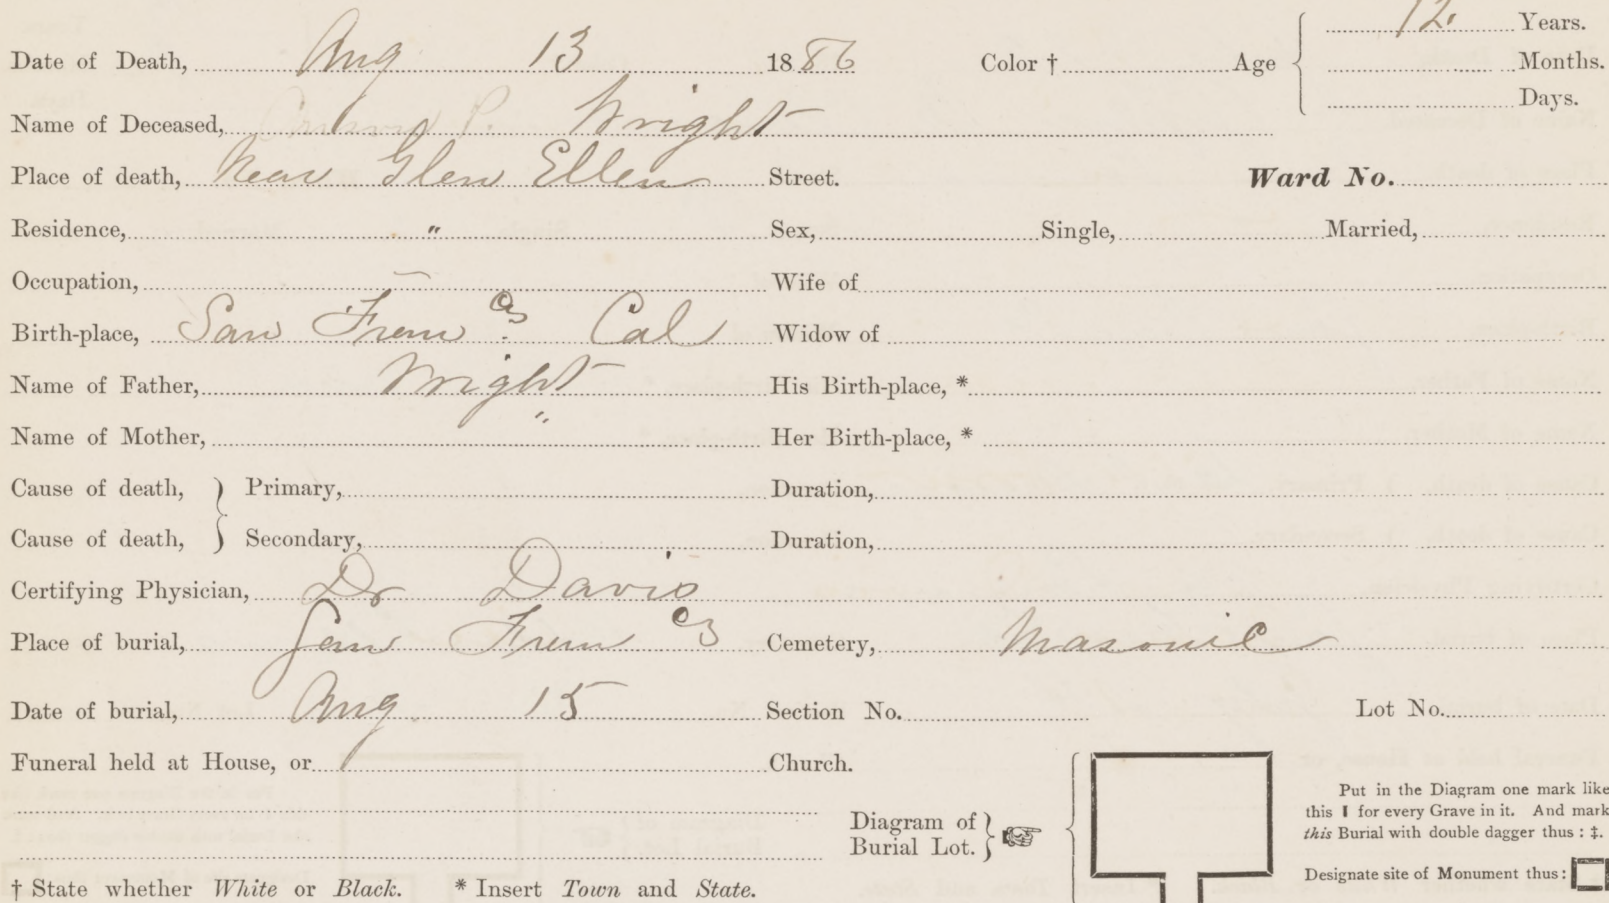 12. Years.
Date of Death, Aug 13 1886 Color † Age Months.
Days.
Name of Deceased, P. Wright
Place of death, Near Glen Ellen Street. Ward No.
Residence, " Sex, Single, Married,
Occupation, — Wife of
Birth-place, San Fran co Cal Widow of
Name of Father, Wright His Birth-place, *
Name of Mother, " Her Birth-place, *
Cause of death, } Primary, Duration,
Cause of death, } Secondary, Duration,
Certifying Physician, Dr Davis
Place of burial, San Fran co Cemetery, Masonic
Date of burial, Aug 15 Section No. Lot No.
Funeral held at House, or Church.
Put in the Diagram one mark like
this I for every Grave in it. And mark
this Burial with double dagger thus : ‡.
Diagram of
Burial Lot. } ☞
Designate site of Monument thus :
† State whether White or Black. * Insert Town and State.